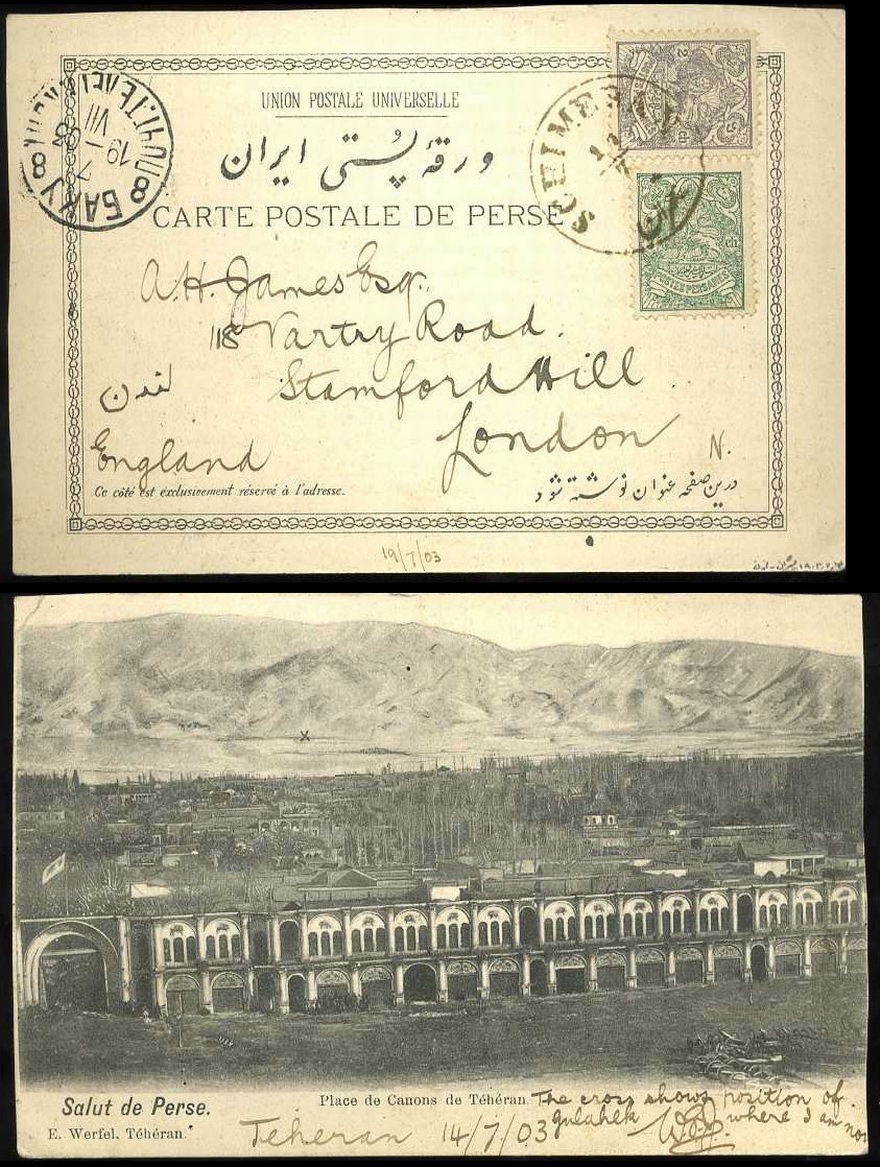 UNION POSTALE UNIVERSELLE
ورقهٔ پُستی ایران
CARTE POSTALE DE PERSE
БАКУ
19
VII
7
2
ch
ch
POSTES PERSANES
A.H. James Esq.
118 Vartry Road.
Stamford Hill
لندن
London
N.
England
Ce côté est exclusivement réservé à l'adresse.
درین صفحه عنوان نوشته شود
19/7/03
Salut de Perse.
Place de Canons de Téhéran.
The cross shows position of
gulahek
where I am now
E. Werfel. Téhéran.
Teheran 14/7/03